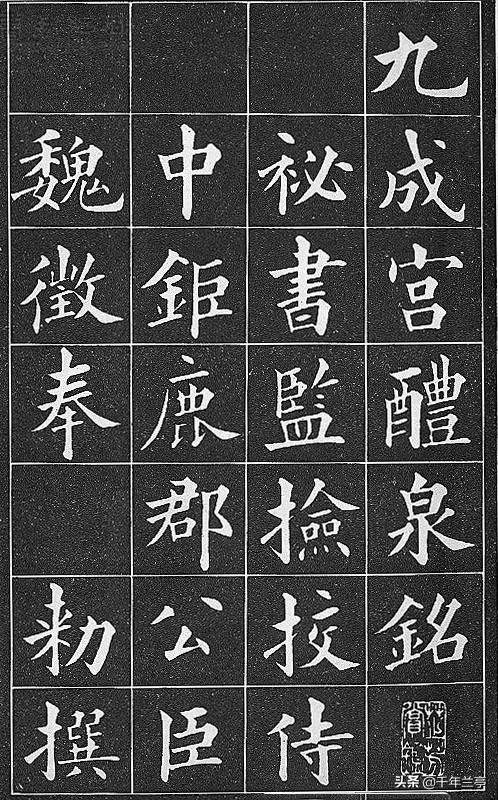 九成宮醴泉銘
祕書監撿挍侍
中鉅鹿郡公臣
魏徵奉 勅撰
头条 @千年兰亭